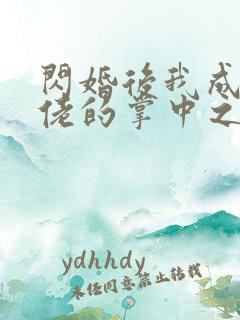 閃婚後我成
佬的掌中之
ydhhdy
未经同意禁止转载